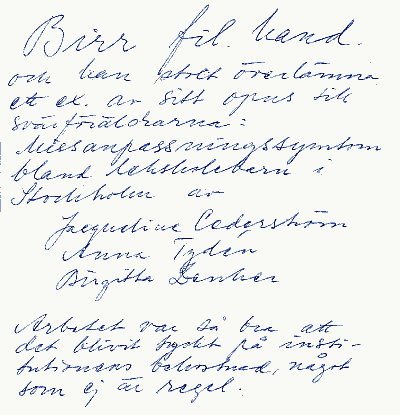 Birr fil. kand.
och kan stolt överlämna
ett ex. av sitt opus till
svärföräldrarna:
Missanpassningssymtom
bland lekskolebarn i
Stockholm av
Jacqueline Cederström
Anna Tydén
Birgitta Denker
Arbetet var så bra att
det blivit tryckt på insti-
tutionens bekostnad, något
som ej är regel.